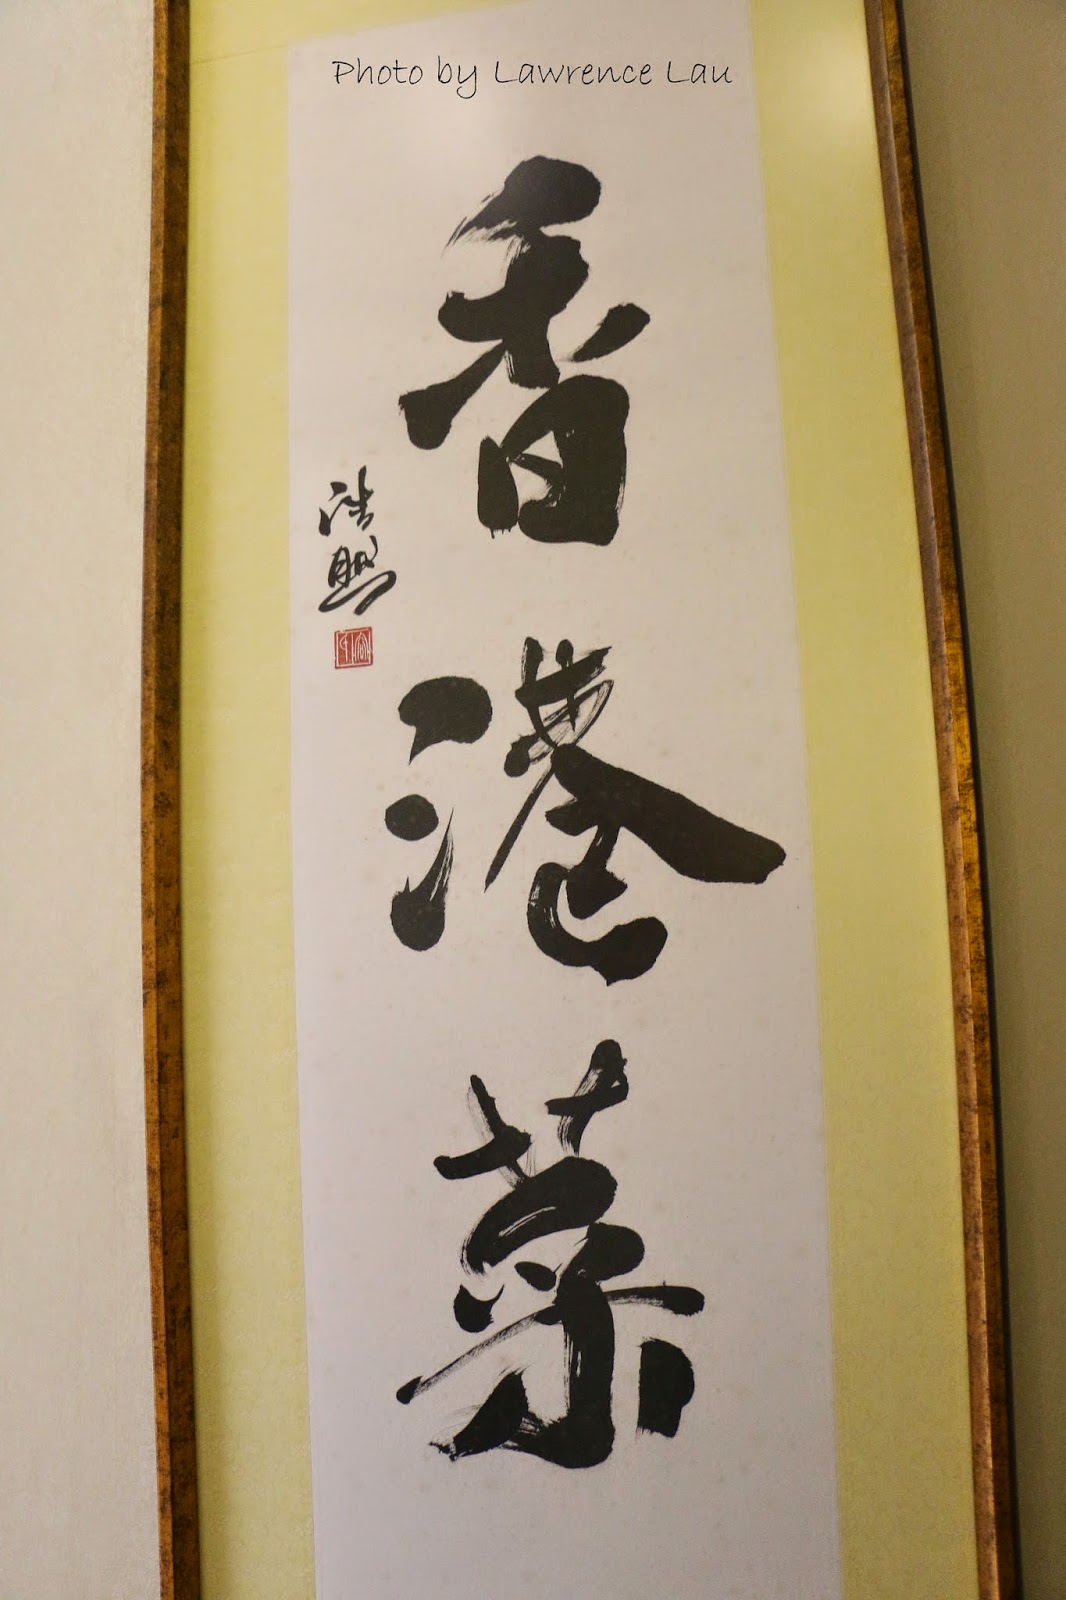 Photo by Lawrence Lau
香港菜
浩然